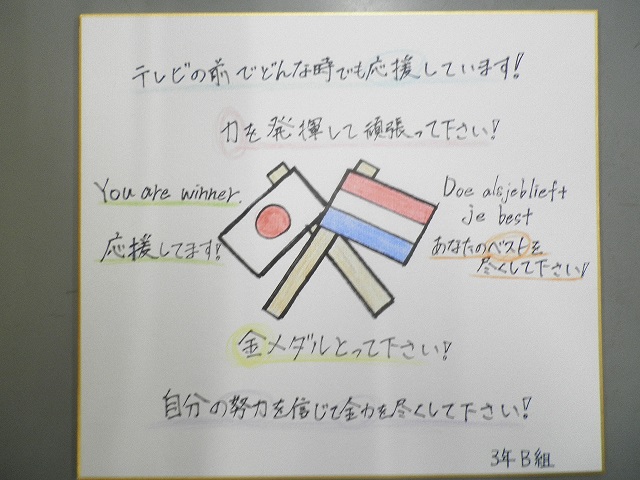 テレビの前でどんな時でも応援しています!
力を発揮して頑張って下さい!
You are winner.
応援してます!
Doe alsjeblieft
je best
あなたのベストを
尽くして下さい!
金メダルとって下さい!
自分の努力を信じて全力を尽くして下さい!
3年B組